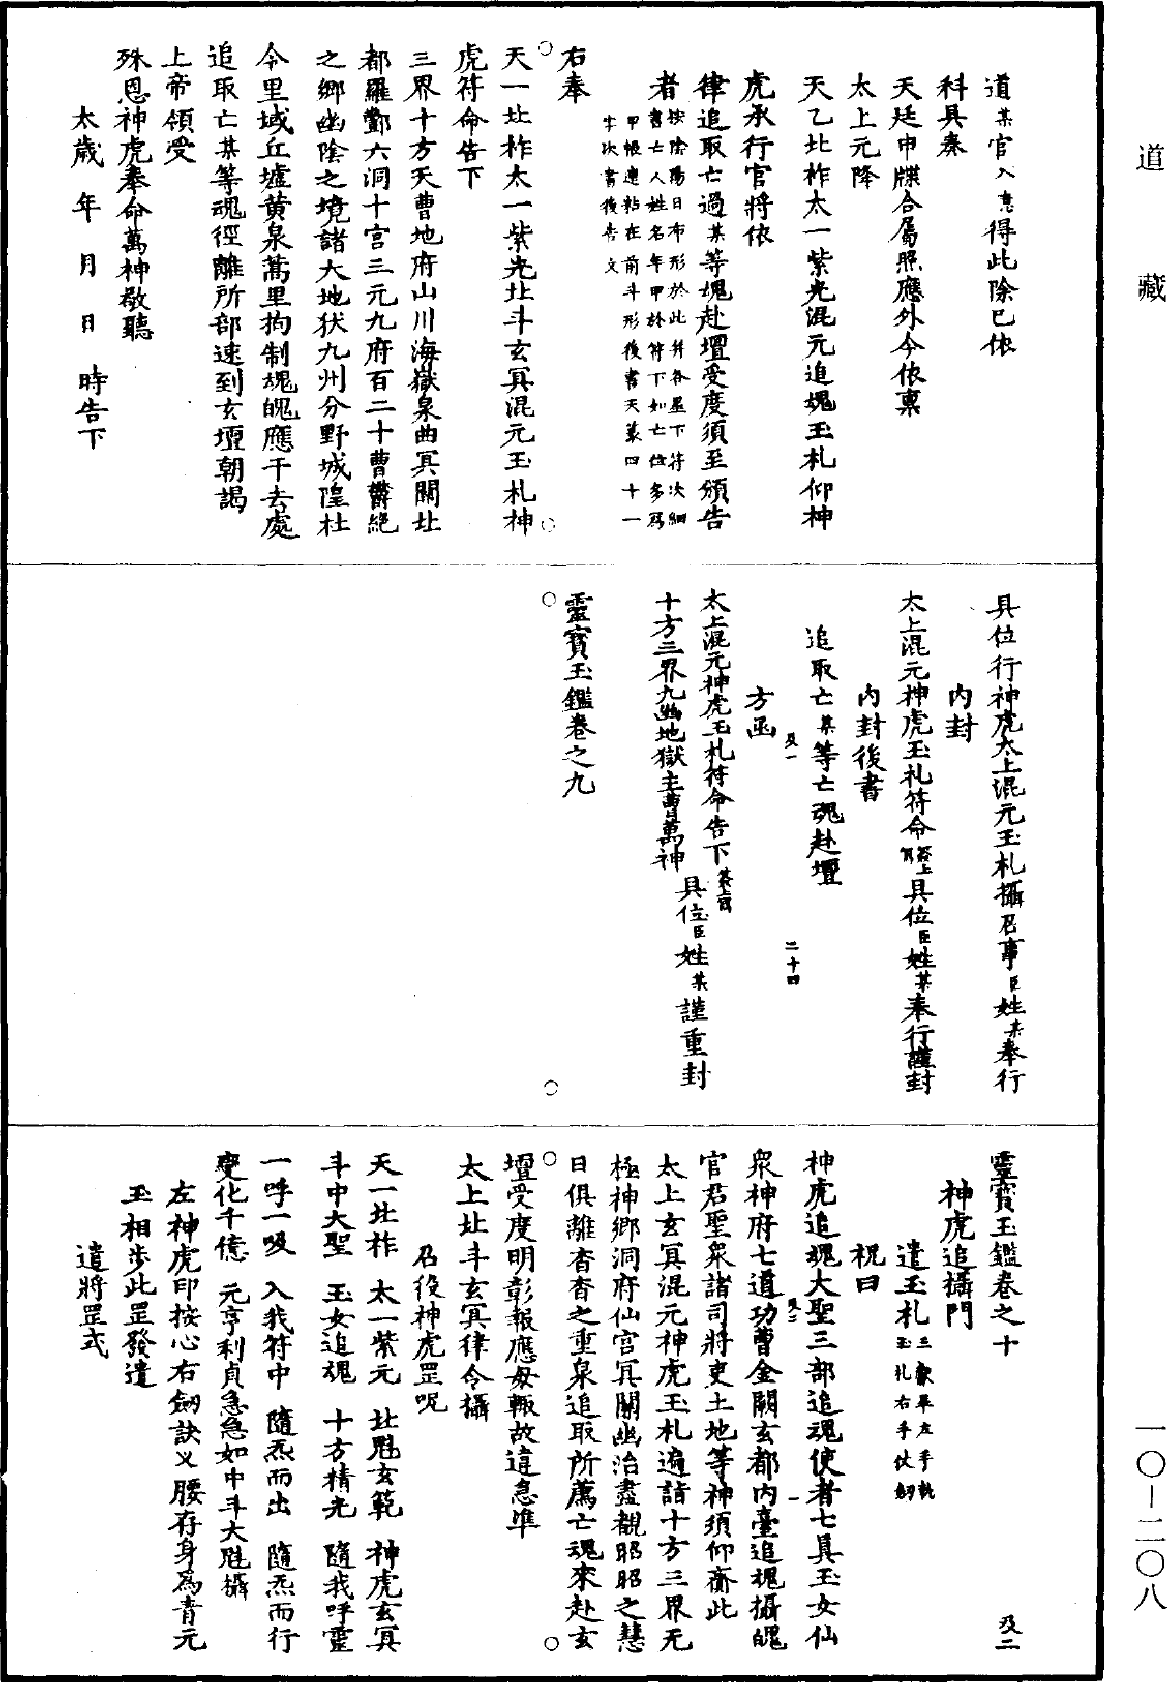 道藏
道某官入意得此除已依
科具奏
天廷申牒合屬照應外今依稟
太上元降
天乙北柞太一紫光混元追魂玉札仰神
虎承行官將依
律追取亡過某等魂赴壇受度須至頒告
者按陰陽日布形於此并各星下符次細
書亡人姓名年甲於符下如亡位多寫
甲帳連黏在前斗形後書天篆四十一
字次書後告文
右奉
天一北柞太一紫光北斗玄冥混元玉札神
虎符命告下
三界十方天曹地府山川海嶽泉曲冥關北
都羅酆六洞十宮三元九府百二十曹欝絕
之鄉幽陰之境諸大地獄九州分野城隍社
令里域丘墟黃泉蒿里拘制魂魄應干去處
追取亡某等魂徑離所部速到玄壇朝謁
上帝領受
殊恩神虎奉命萬神敬聽
太歲年月日時告下
具位行神虎太上混元玉札攝召事臣姓某奉行
內封
太上混元神虎玉札符命 具位臣姓某奉行謹封
內封後書
追取亡某等亡魂赴壇
及一 二十四
方函
太上混元神虎玉札符命告下
十方三界九幽地獄主曹萬神
具位臣姓某謹重封
靈寶玉鑑卷之九
靈寶玉鑑卷之十 及二
神虎追攝門
遣玉札三獻畢左手執
玉札右手仗劒
祝曰
神虎追魂大聖三部追魂使者七真玉女仙
眾神府七道功曹金闕玄都內臺追魂攝魄
及二 一
官君聖眾諸司將吏土地等神須仰齎此
太上玄冥混元神虎玉札遍詣十方三界无
極神鄉洞府仙宮冥關幽治盡覩昭昭之慧
日俱離杳杳之重泉追取所薦亡魂來赴玄
壇受度明彰報應毋輒故違急準
太上北斗玄冥律令攝
召役神虎罡呪
天一北柞 太一紫元 北魁玄範 神虎玄冥
斗中大聖 玉女追魂 十方精光 隨我呼靈
一呼一吸 入我符中 隨炁而出 隨炁而行
變化千億 元亨利貞急急如中斗大魁攝
左神虎印按心右劒訣叉腰存身為青元
玉相步此罡發遣
遣將罡式
一〇—二〇八